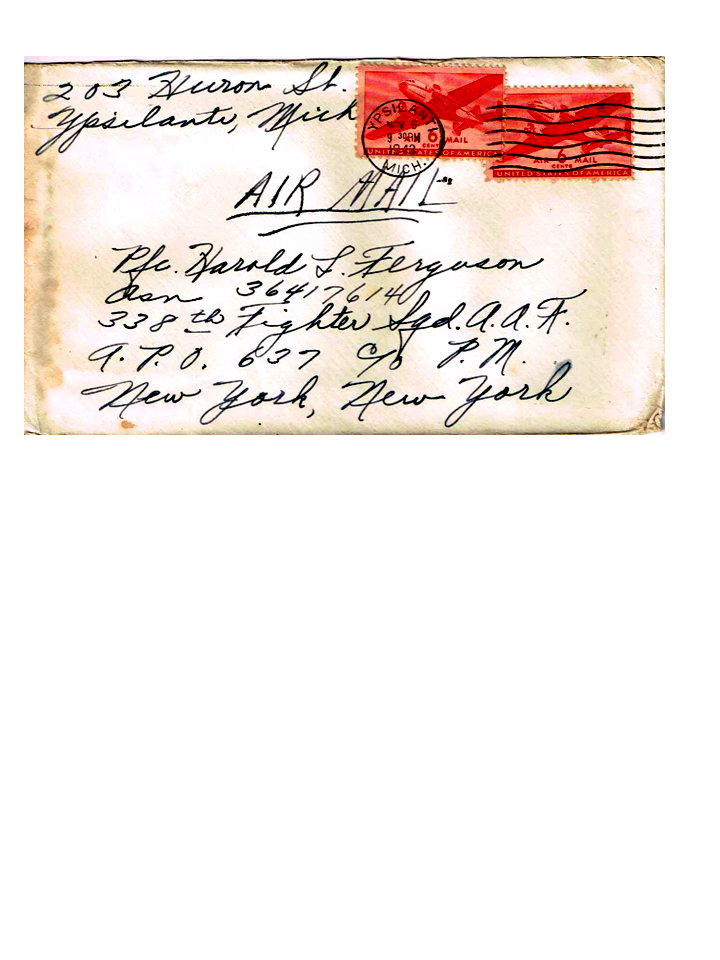 203 Huron St.
Ypsilanti, Mich
YPSILANTI
9 30PM
1943
MICH.
6 CENTS MAIL
UNITED STATES OF AMERICA
AIR 6 MAIL
CENTS
UNITED STATES OF AMERICA
AIR MAIL
Pfc. Harold L. Ferguson
asn 36417614
338th Fighter Sqd. A.A.F.
A.P.O. 637 c/o P.M.
New York, New York